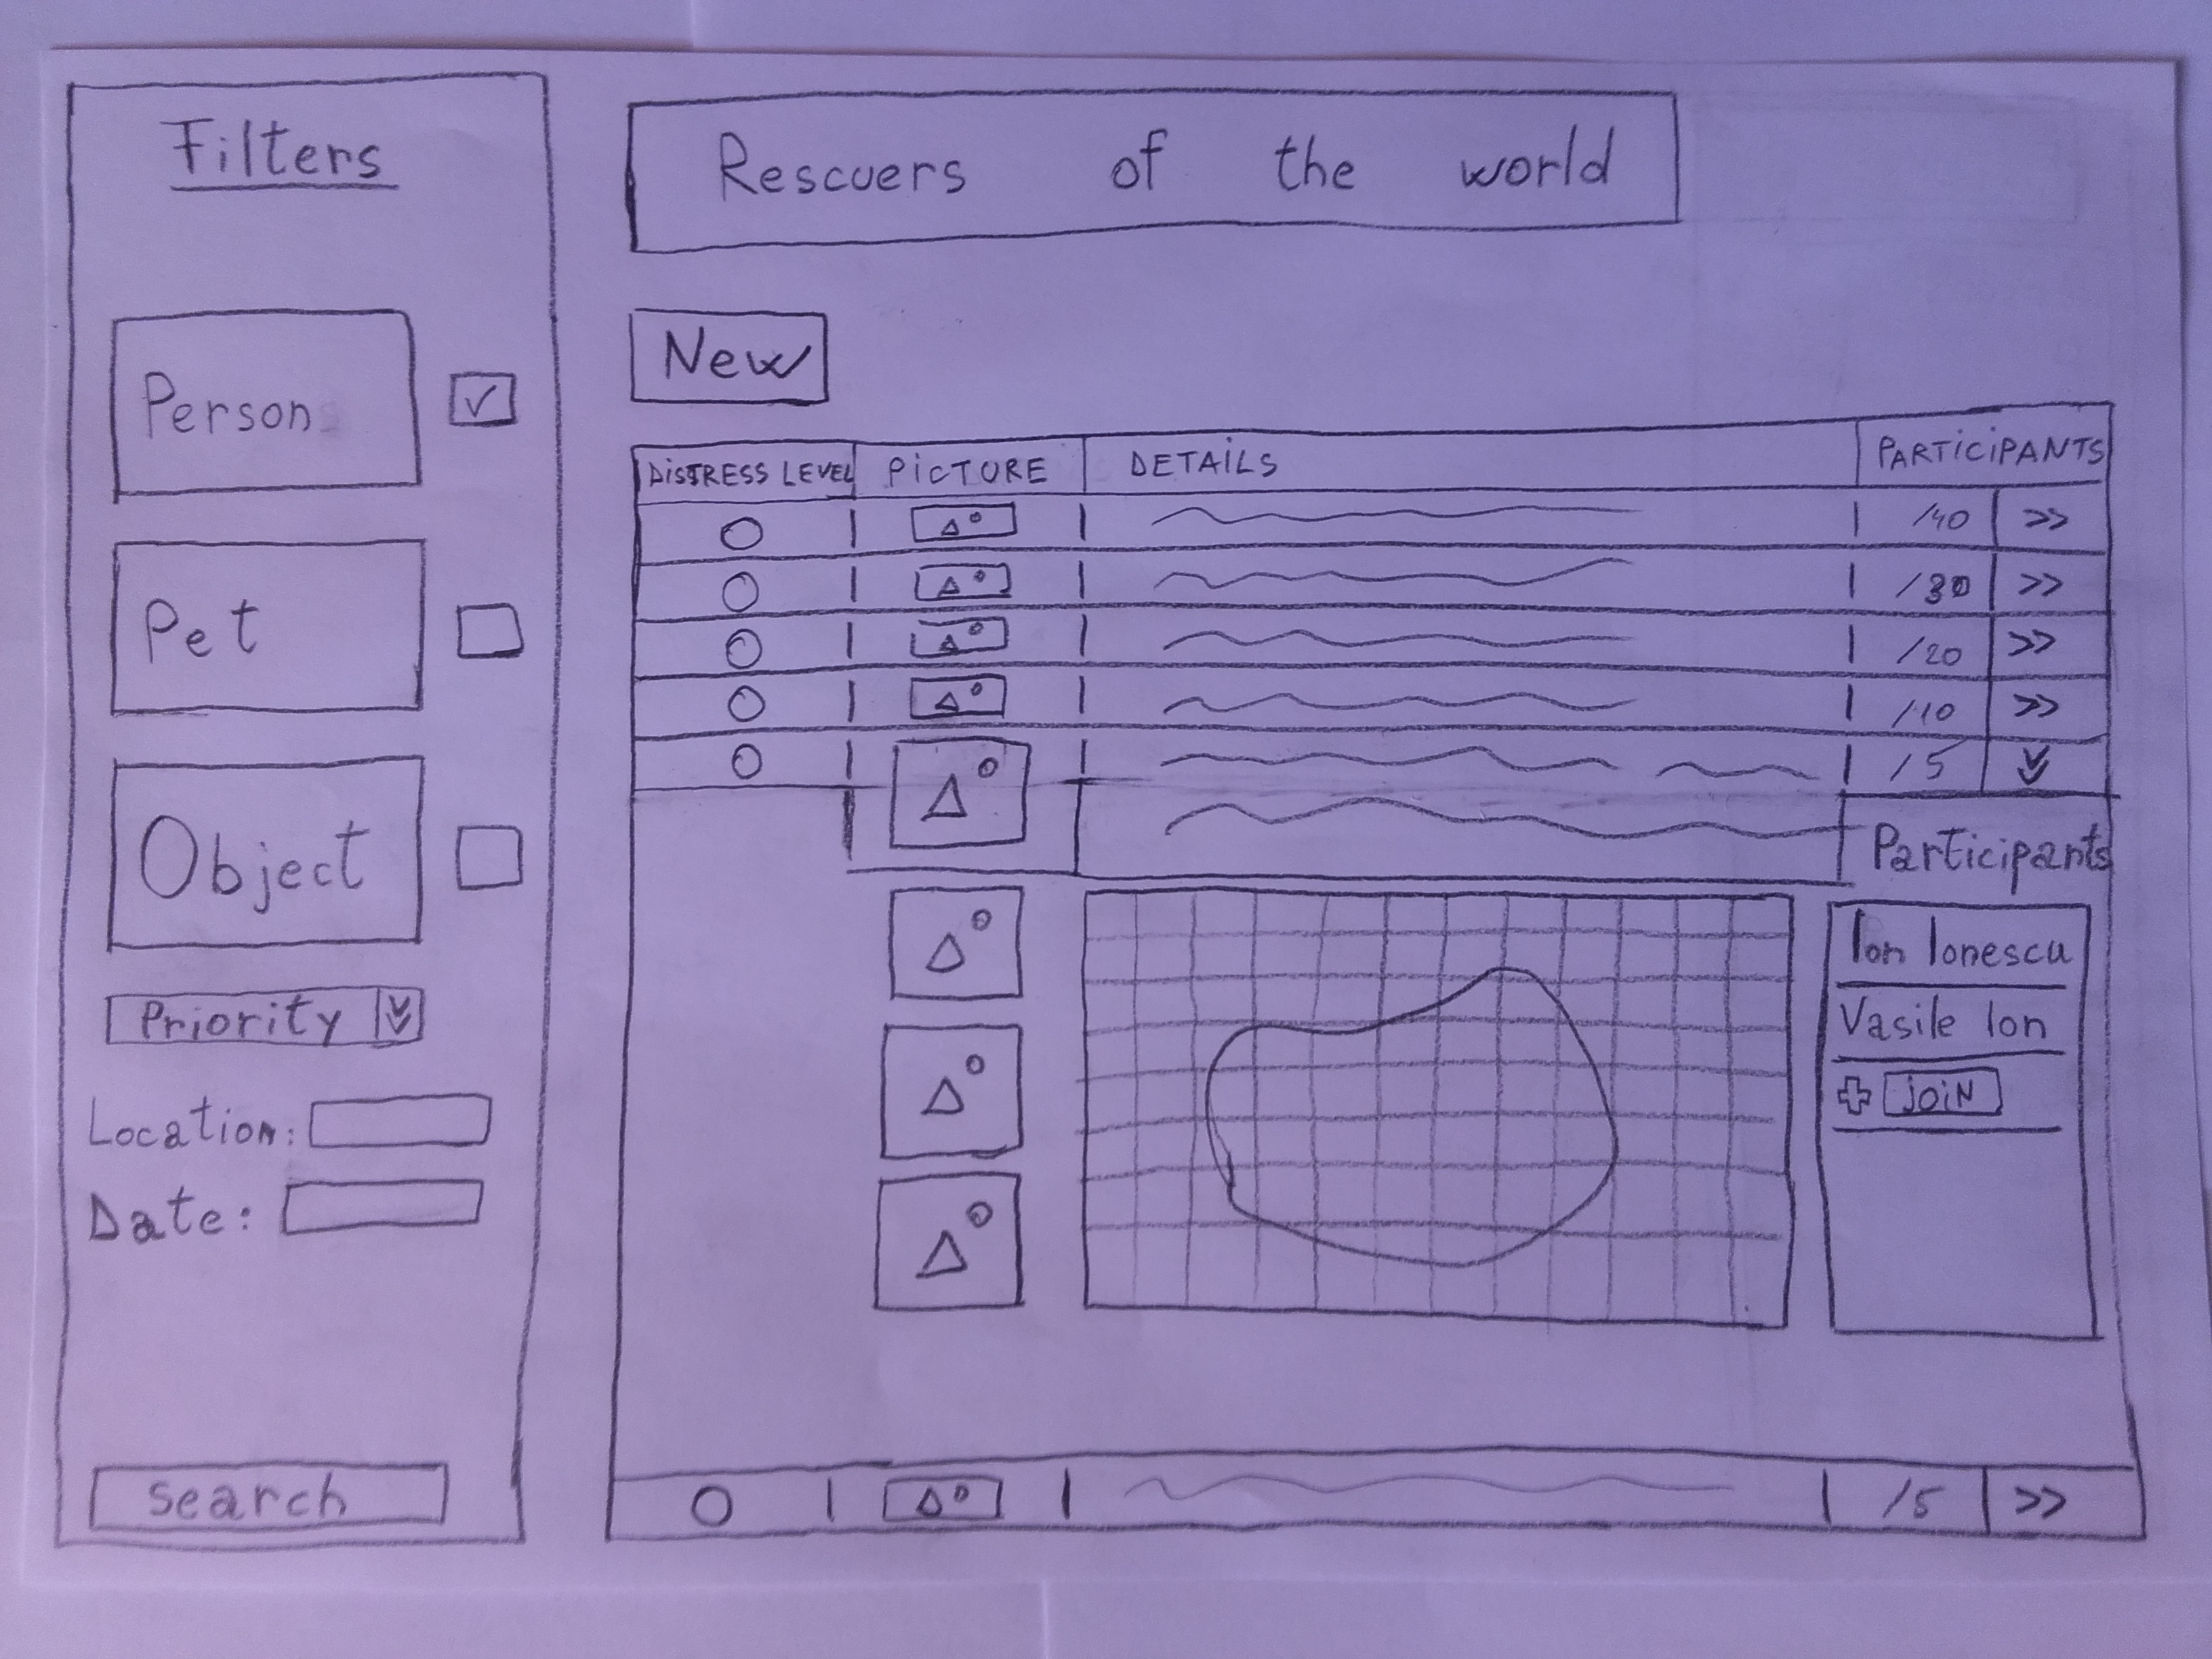 Filters
Person
Pet
Object
Priority
Location:
Date:
search
Rescuers of the world
New
DISTRESS LEVEL PICTURE DETAILS PARTICIPANTS
/40 >>
/30 >>
/20 >>
/10 >>
/5
Participants
Ion Ionescu
Vasile Ion
+ JOIN
/5 >>